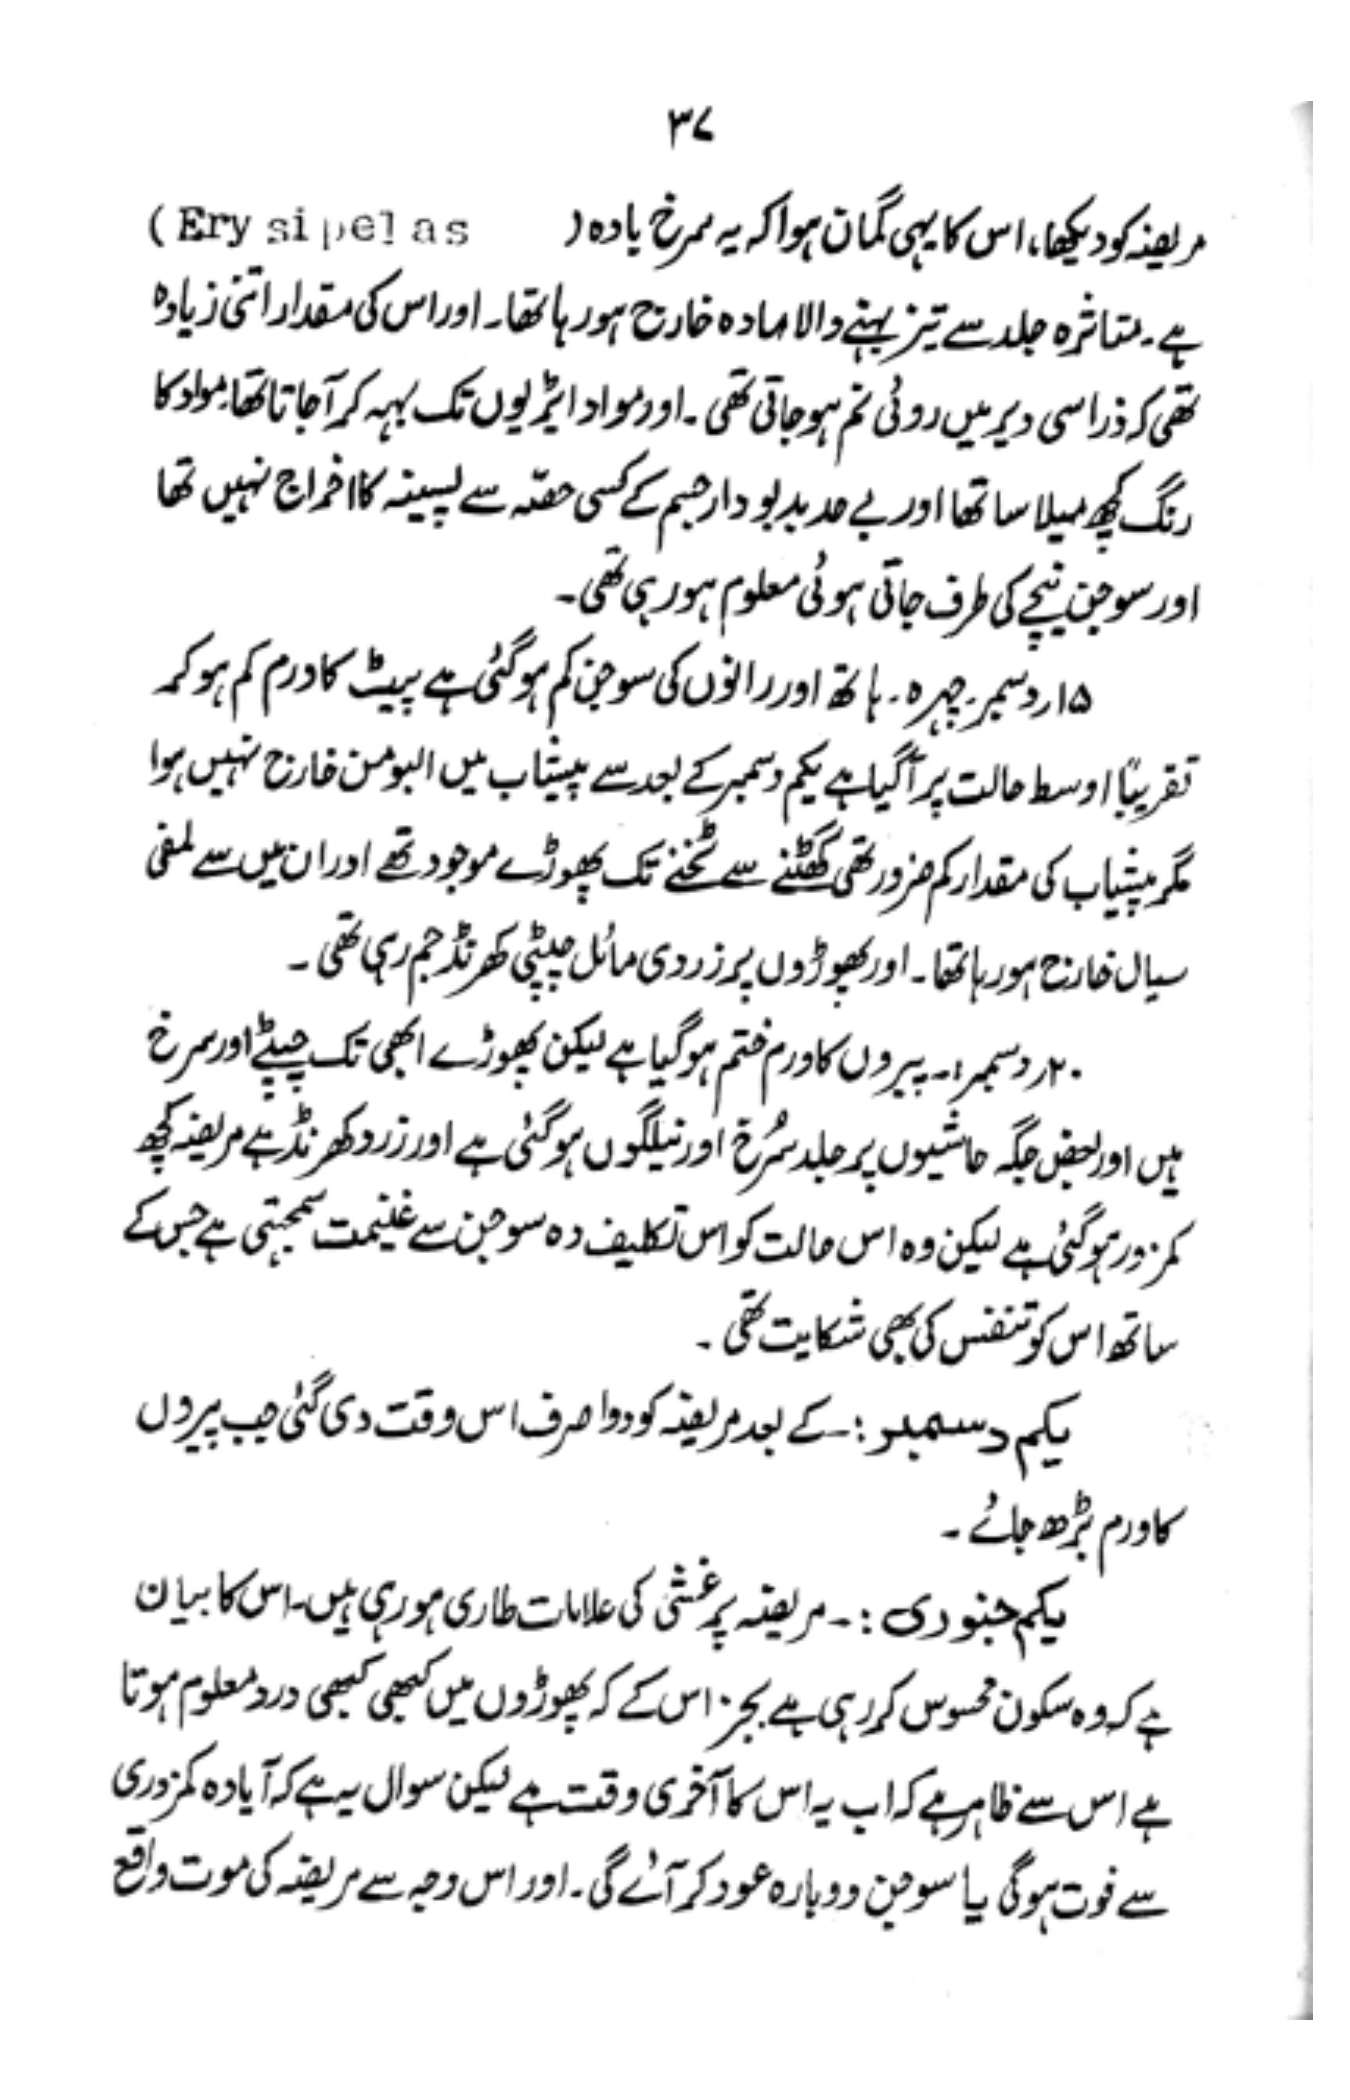 ۳۷
مریضہ کو دیکھا، اس کا یہی گمان ہوا کہ یہ سرخ یادہ (Erysipelas)
ہے۔ متاثرہ جلد سے تیز بہنے والا مادہ خارج ہو رہا تھا۔ اور اس کی مقدار اتنی زیادہ
تھی کہ ذرا سی دیر میں روئی نم ہو جاتی تھی۔ اور مواد ایڑیوں تک بہہ کر آجاتا تھا، مواد کا
رنگ کچھ میلا سا تھا اور بے حد بدبودار جسم کے کسی حصّہ سے پسینہ کا اخراج نہیں تھا
اور سوجن نیچے کی طرف جاتی ہوئی معلوم ہو رہی تھی۔
۱۵ر دسمبر۔ چہرہ۔ ہاتھ اور رانوں کی سوجن کم ہو گئی ہے پیٹ کا ورم کم ہو کر
تقریباً اوسط حالت پر آگیا ہے یکم دسمبر کے بعد سے پیشاب میں البومن خارج نہیں ہوا
مگر پیشاب کی مقدار کم ضرور تھی گھٹنے سے ٹخنے تک پھوڑے موجود تھے اور ان میں سے لمفی
سیال خارج ہو رہا تھا۔ اور پھوڑوں پر زردی مائل چپٹی کھرنڈ جم رہی تھی۔
۲۰ر دسمبر:۔ پیروں کا ورم ختم ہو گیا ہے لیکن پھوڑے ابھی تک چپٹے اور سرخ
ہیں اور بعض جگہ حاشیوں پر جلد سُرخ اور نیلگوں ہو گئی ہے اور زرد کھرنڈ ہے مریضہ کچھ
کمزور ہو گئی ہے لیکن وہ اس حالت کو اس تکلیف دہ سوجن سے غنیمت سمجہتی ہے جس کے
ساتھ اس کو تنفس کی بھی شکایت تھی۔
یکم دسمبر:۔ کے بعد مریضہ کو دوا صرف اس وقت دی گئی جب پیروں
کا ورم بڑھ جائے۔
یکم جنوری:۔ مریضہ پر غشی کی علامات طاری ہو رہی ہیں۔ اس کا بیان
ہے کہ وہ سکون محسوس کر رہی ہے بجز اس کے کہ پھوڑوں میں کبھی کبھی درد معلوم ہوتا
ہے اس سے ظاہر ہے کہ اب یہ اس کا آخری وقت ہے لیکن سوال یہ ہے کہ آیا وہ کمزوری
سے فوت ہو گی یا سوجن دوبارہ عود کر آئے گی۔ اور اس وجہ سے مریضہ کی موت واقع